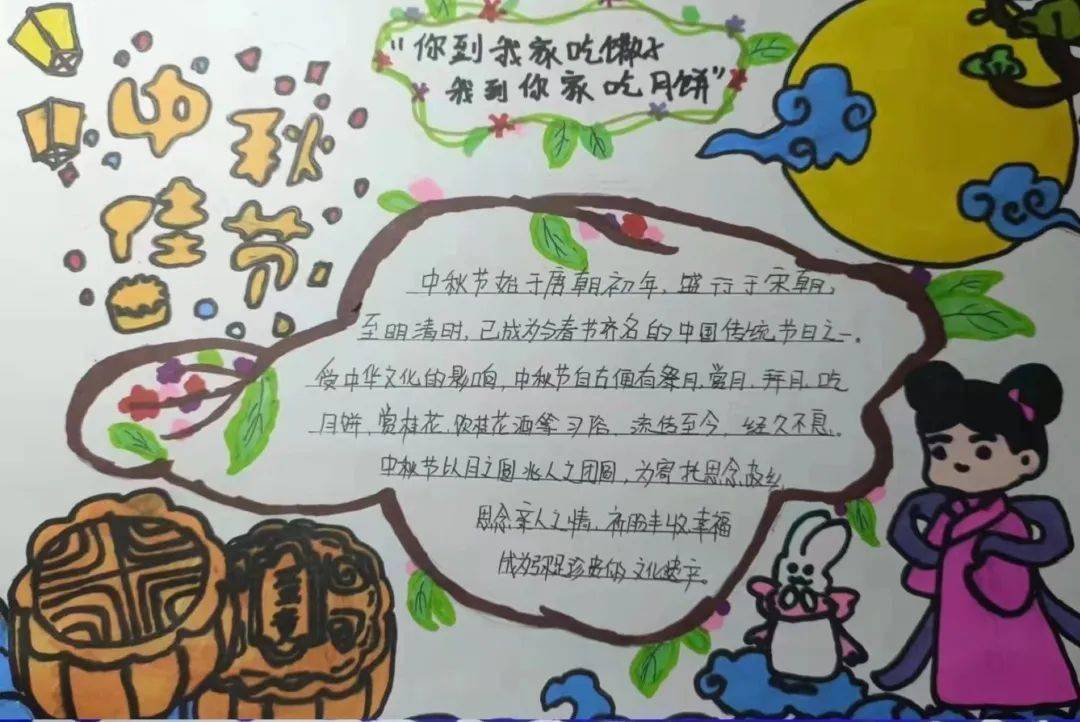 中秋
佳节
“你到我家吃馓子
我到你家吃月饼”
中秋节始于唐朝初年，盛行于宋朝，
至明清时，已成为与春节齐名的中国传统节日之一。
受中华文化的影响，中秋节自古便有祭月，赏月，拜月，吃
月饼，赏桂花，饮桂花酒等习俗，流传至今，经久不息。
中秋节以月之圆兆人之团圆，为寄托思念故乡，
思念亲人之情，祈盼丰收，幸福
成为 珍贵的文化遗产。